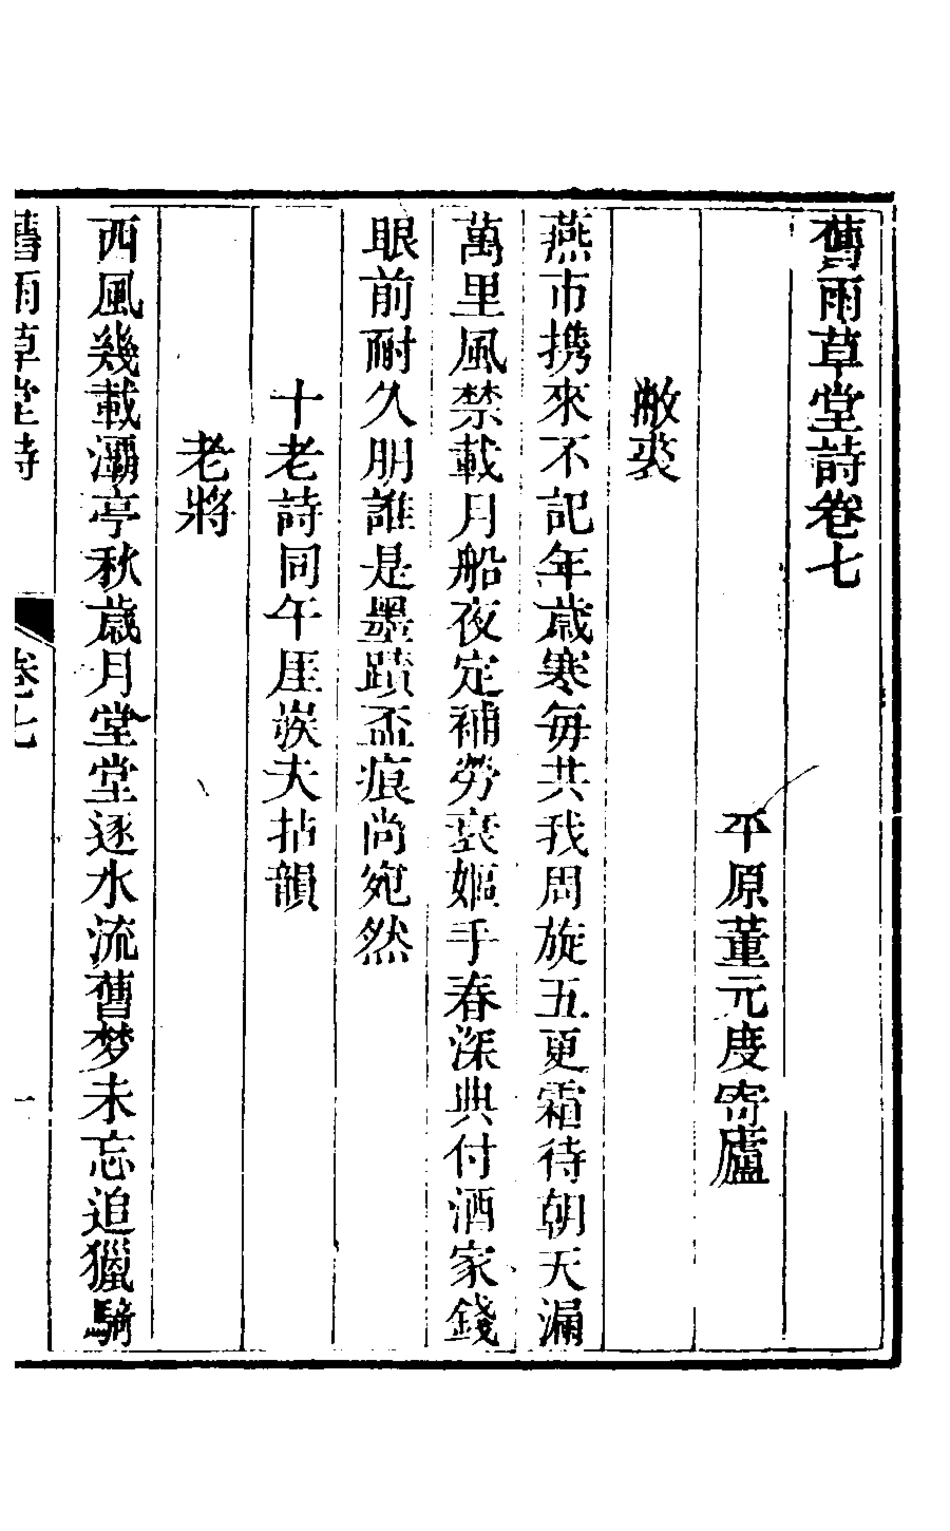 舊雨草堂詩卷七
平原董元度寄廬
敝裘
燕市攜來不記年歲寒每共我周旋五更霜待朝天漏
萬里風禁載月船夜定補勞衰嫗手春深典付酒家錢
眼前耐久朋誰是墨蹟盃痕尚宛然
十老詩同午厓莪夫拈韻
老將
西風幾載灞亭秋歲月堂堂逐水流舊梦未忘追獵騎
舊雨草堂詩
卷七
一